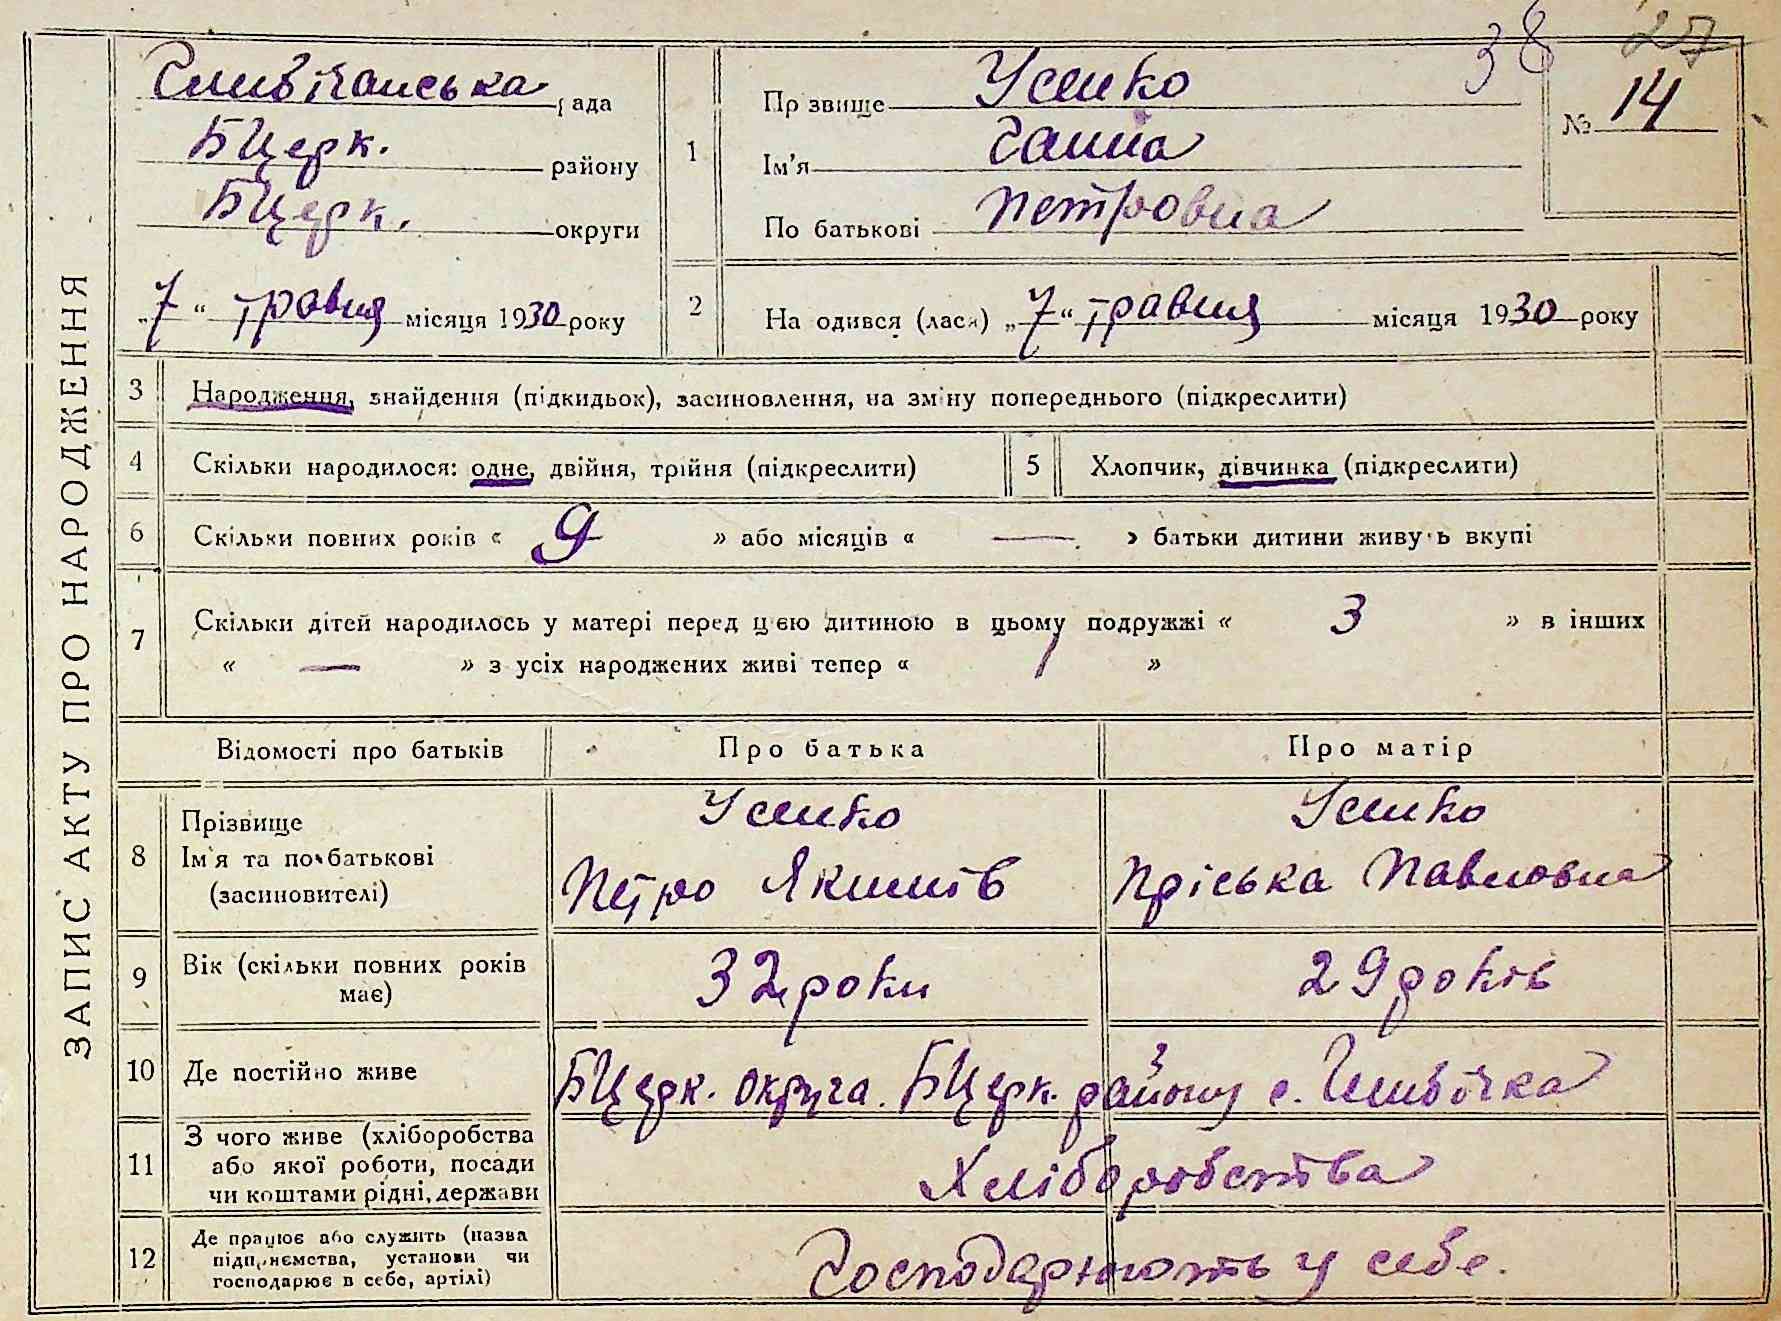 ЗАПИС АКТУ ПРО НАРОДЖЕННЯ
38 27
рада
БЦерк. району
БЦерк. округи
„7“ травня місяця 1930 року
1 Прізвище Усенко
Ім'я Ганна
По батькові Петровна
№ 14
2 Народився (лася) „7“ травня місяця 1930 року
3 Народження, знайдення (підкидьок), засиновлення, на зміну попереднього (підкреслити)
4 Скільки народилося: одне, двійня, трійня (підкреслити)
5 Хлопчик, дівчинка (підкреслити)
6 Скільки повних років « 9 » або місяців « — » батьки дитини живуть вкупі
7 Скільки дітей народилось у матері перед цією дитиною в цьому подружжі « 3 » в інших
« — » з усіх народжених живі тепер « 1 »
Відомості про батьків Про батька Про матір
8 Прізвище
Ім'я та по-батькові
(засиновителі)
Усенко
Петро Якимів
Усенко
Пріська Павловна
9 Вік (скільки повних років
має)
32 роки
29 років
10 Де постійно живе
БЦерк. округа. БЦерк. району с.
11 З чого живе (хліборобства
або якої роботи, посади
чи коштами рідні, держави
Хліборобства
12 Де працює або служить (назва
підприємства, установи чи
господарює в себе, артілі)
Господарюють у себе.